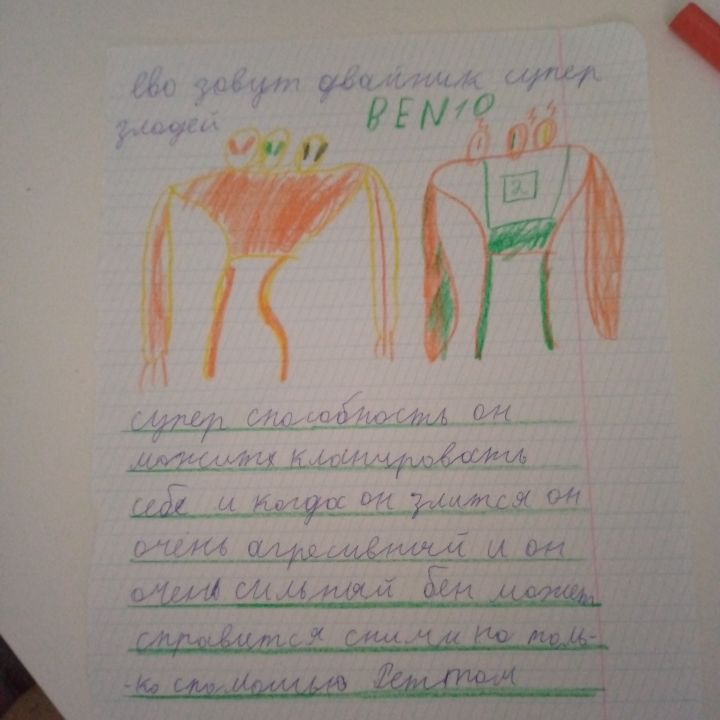 Ево зовут двайник супер
злодей
BEN10
2
супер способность он
можите кланировать
себя и когда он злится он
очень агресивный и он
очень сильный бен может
справится сними но толь-
-ко спомощью